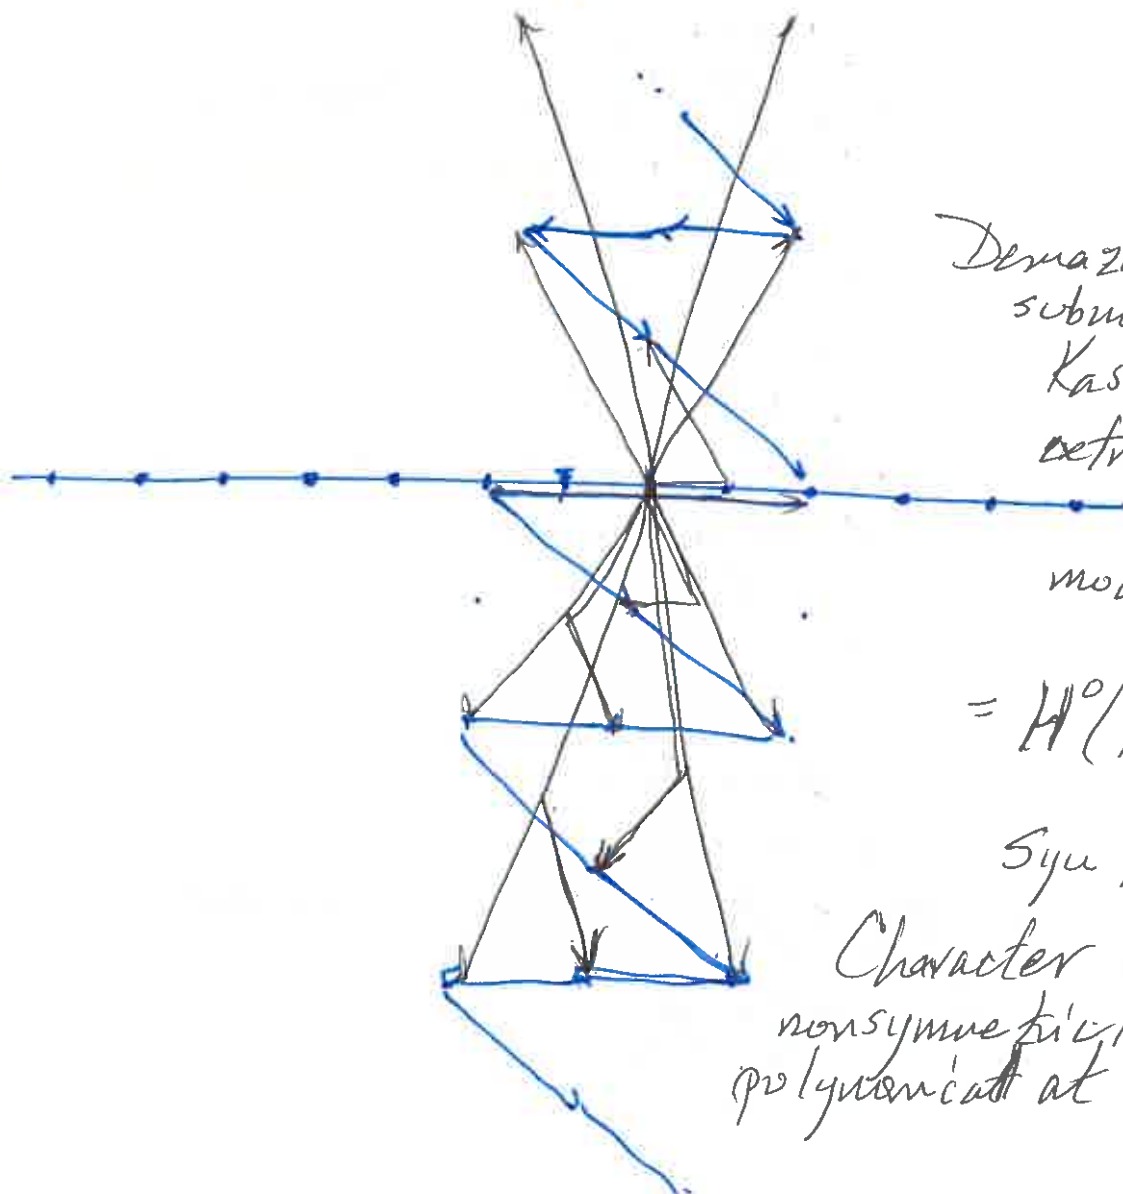 Demaz
subm
Kas
extr
mod
= H⁰(
Syu
Character
nonsymmetric
polynomial at